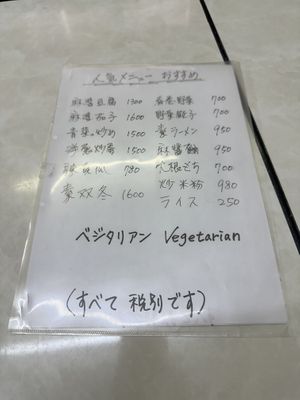 人気メニュー おすすめ
麻婆豆腐 1300 春巻野菜 700
麻婆茄子 1600 野菜餃子 700
青菜の炒め 1500 素ラーメン 950
1500 麻醤麺 950
780 大根もち 700
素双冬 1600 炒米粉 980
ライス 250
ベジタリアン Vegetarian
(すべて 税別です)